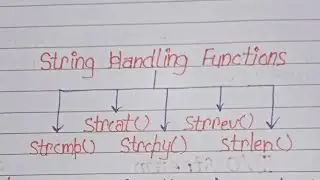 String Handling Functions
Strcat() Strrev()
Strcmp() Strcpy() Strlen()